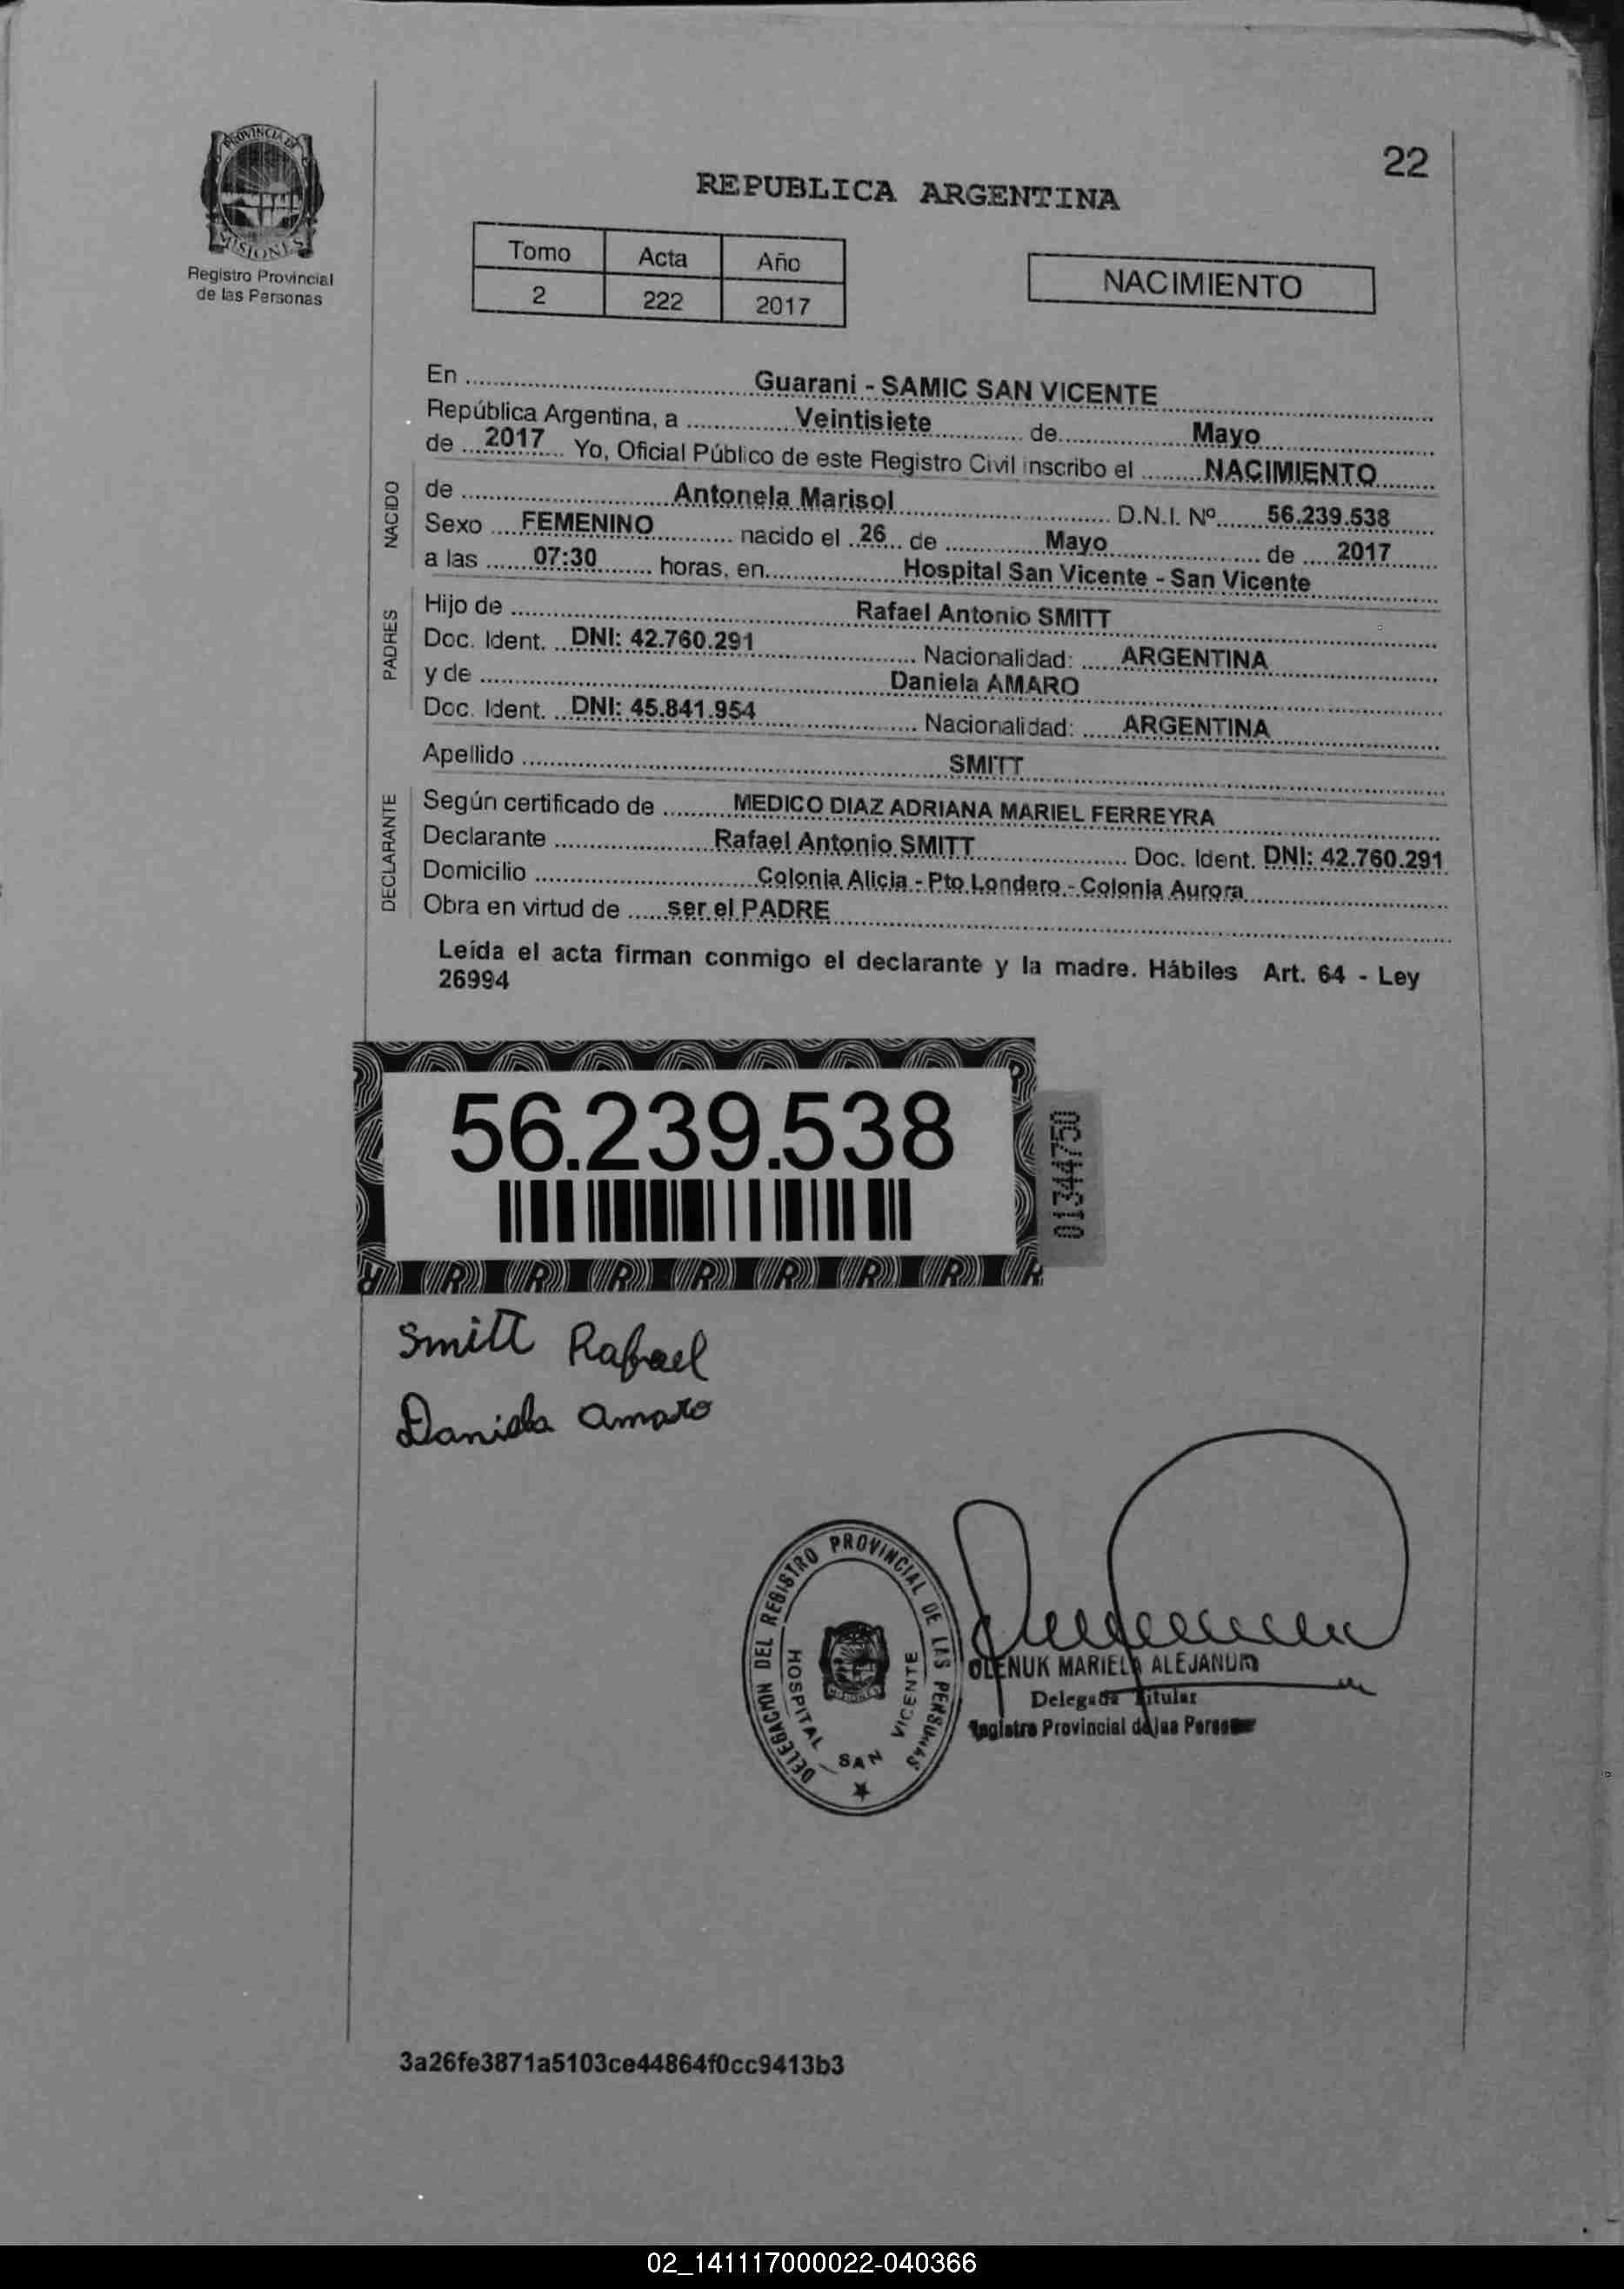 PROVINCIA DE
MISIONES
Registro Provincial
de las Personas
22
REPUBLICA ARGENTINA
Tomo Acta Año
2 222 2017
NACIMIENTO
En Guarani - SAMIC SAN VICENTE
República Argentina, a Veintisiete de Mayo
de 2017 Yo, Oficial Público de este Registro Civil inscribo el NACIMIENTO
NACIDO
de Antonela Marisol D.N.I. Nº 56.239.538
Sexo FEMENINO nacido el 26 de Mayo de 2017
a las 07:30 horas, en Hospital San Vicente - San Vicente
PADRES
Hijo de Rafael Antonio SMITT
Doc. Ident. DNI: 42.760.291 Nacionalidad: ARGENTINA
y de Daniela AMARO
Doc. Ident. DNI: 45.841.954 Nacionalidad: ARGENTINA
Apellido SMITT
DECLARANTE
Según certificado de MEDICO DIAZ ADRIANA MARIEL FERREYRA
Declarante Rafael Antonio SMITT Doc. Ident. DNI: 42.760.291
Domicilio Colonia Alicia - Pto Londero - Colonia Aurora
Obra en virtud de ser el PADRE
Leída el acta firman conmigo el declarante y la madre. Hábiles Art. 64 - Ley
26994
56.239.538
01344750
Smitt Rafael
Daniela Amaro
DELEGACION DEL REGISTRO PROVINCIAL DE LAS PERSONAS
HOSPITAL SAN VICENTE
OLENUK MARIELA
Delegada Titular
Registro Provincial de las
3a26fe3871a5103ce44864f0cc9413b3
02_141117000022-040366